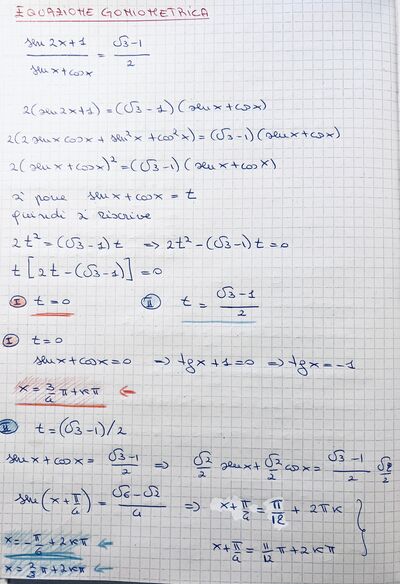 EQUAZIONE GONIOMETRICA
(sen2x+1)/(senx+cosx) = (√3-1)/2
2(sen2x+1)=(√3-1)(senx+cosx)
2(2senxcosx + sen²x+cos²x)=(√3-1)(senx+cosx)
2(senx+cosx)²=(√3-1)(senx+cosx)
si pone senx+cosx=t
quindi si riscrive
2t²=(√3-1)t ⇒ 2t²-(√3-1)t=0
t[2t-(√3-1)]=0
I t=0 II t = (√3-1)/2
I t=0
senx+cosx=0 ⇒ tgx+1=0 ⇒ tgx=-1
x=3/4 π+kπ ←
II t=(√3-1)/2
senx+cosx = (√3-1)/2 ⇒ √2/2 senx+√2/2 cosx = (√3-1)/2 √2/2
sen(x+π/4) = (√6-√2)/4 ⇒ x+π/4 = π/12 + 2πk
x=-π/6+2kπ ← x+π/4 = 11/12 π+2kπ
x=2/3 π+2kπ ←